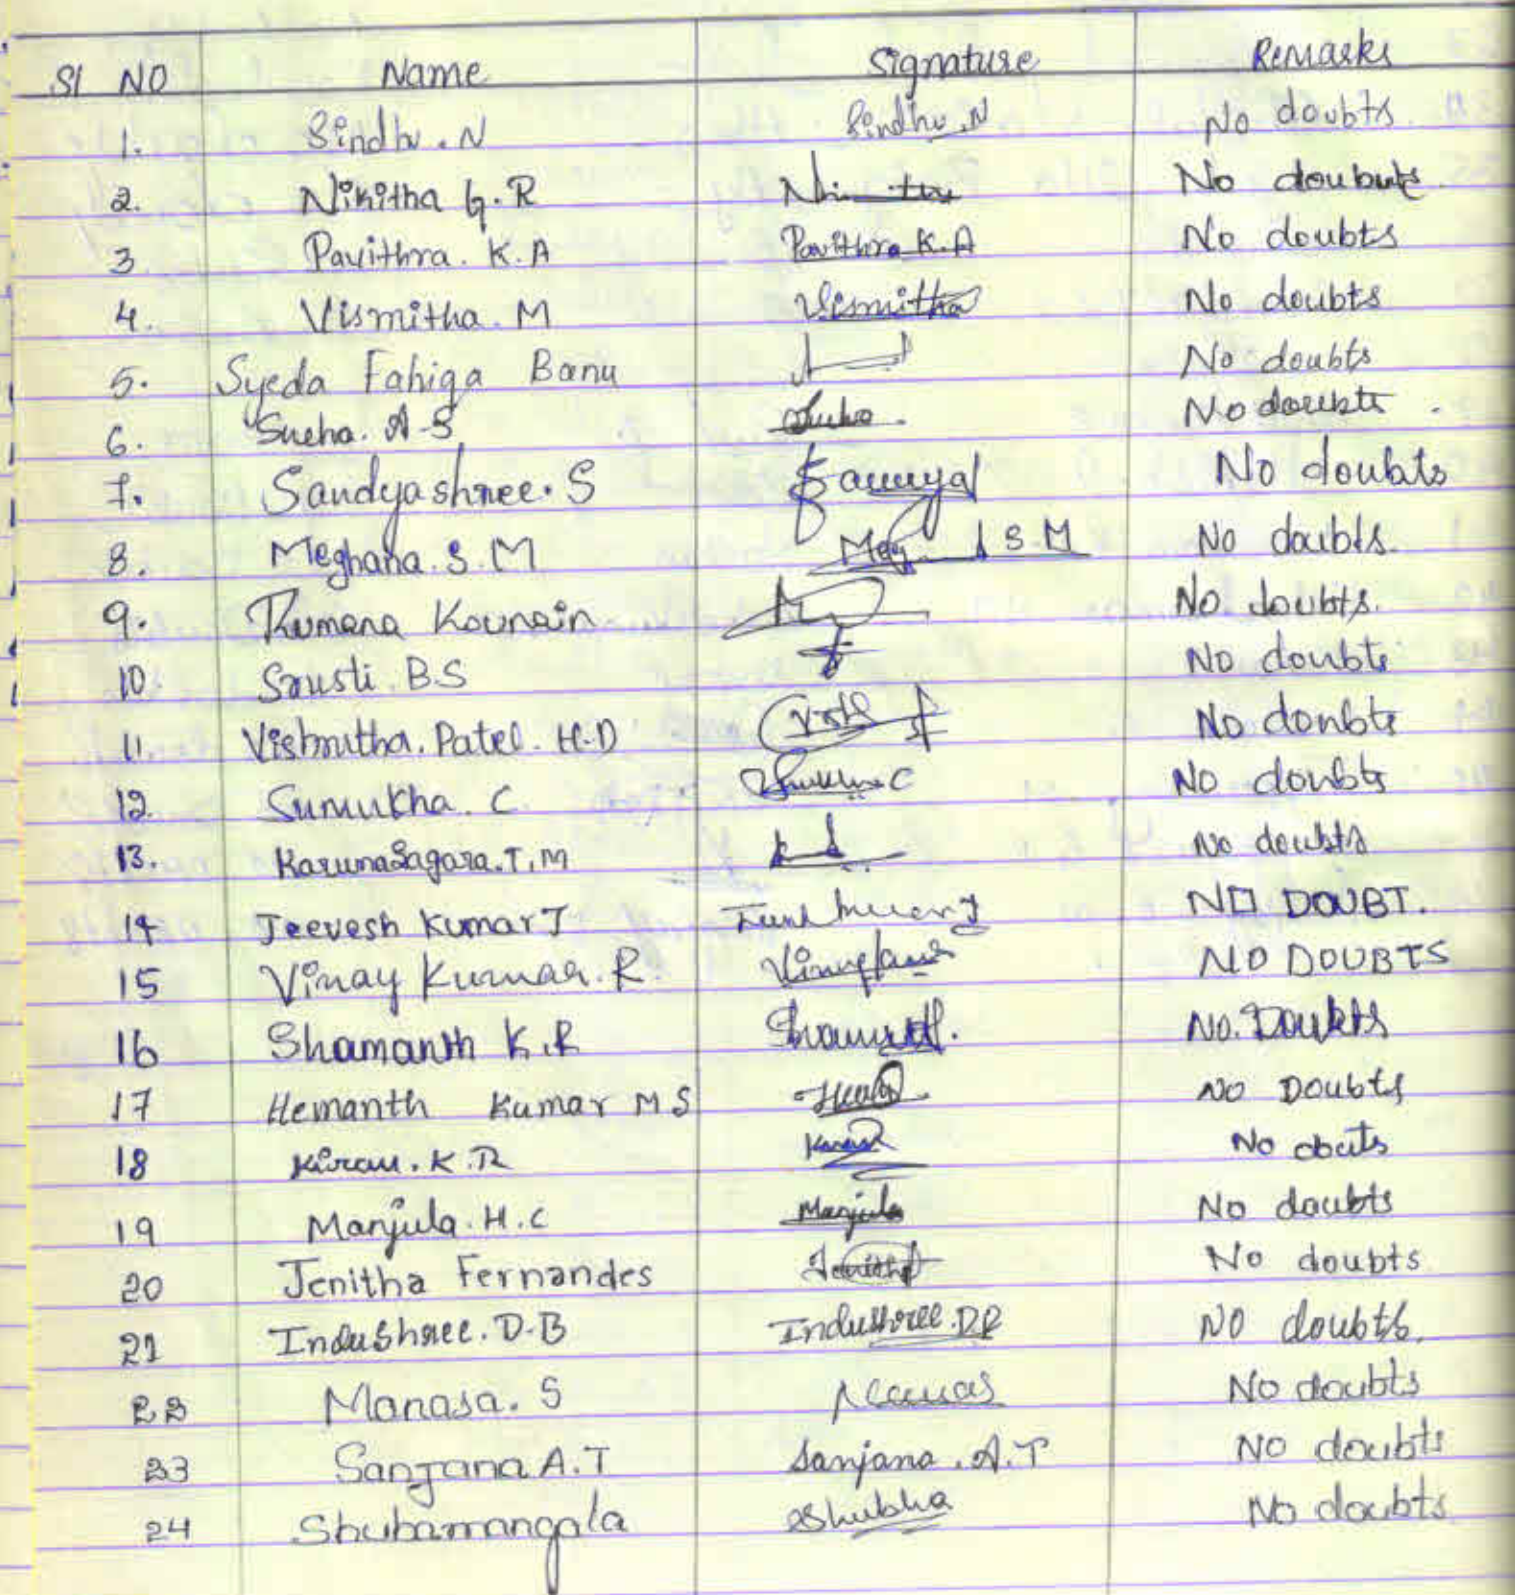 Sl NO Name Signature Remarks
1. Sindhu.N Sindhu.N No doubts
2. Nikitha G.R No doubute
3 Pavithra. K.A Pavithra K.A No doubts
4. Vismitha. M Vismitha No doubts
5. Syeda Fahiga Banu No doubts
6. Sneha. A-S No doubts.
7. Sandyashree. S No doubts
8. Meghana. S. M S.M No doubts.
9. Rumana Kounain No doubts.
10. Srusti. B.S No doubts
11. Vishmitha. Patel. H.D No doubts
12. Sumukha. C No doubts
13. KarunaSagara.T.M No doubts
14 Jeevesh Kumar J NO DOUBT.
15 Vinay Kumar. R. NO DOUBTS
16 Shamanth K.R No. Doubts
17 Hemanth Kumar M S No Doubts
18 Kiran. K.R No
19 Manjula. H.C Manjula No doubts
20 Jenitha Fernandes Jenitha No doubts
21 Indushree. D.B Indushree.DB NO doubts.
22 Manasa. S Manas No doubts
23 Sanjana A.T Sanjana. A.T No doubts
24 Shubamangala Shubha No doubts